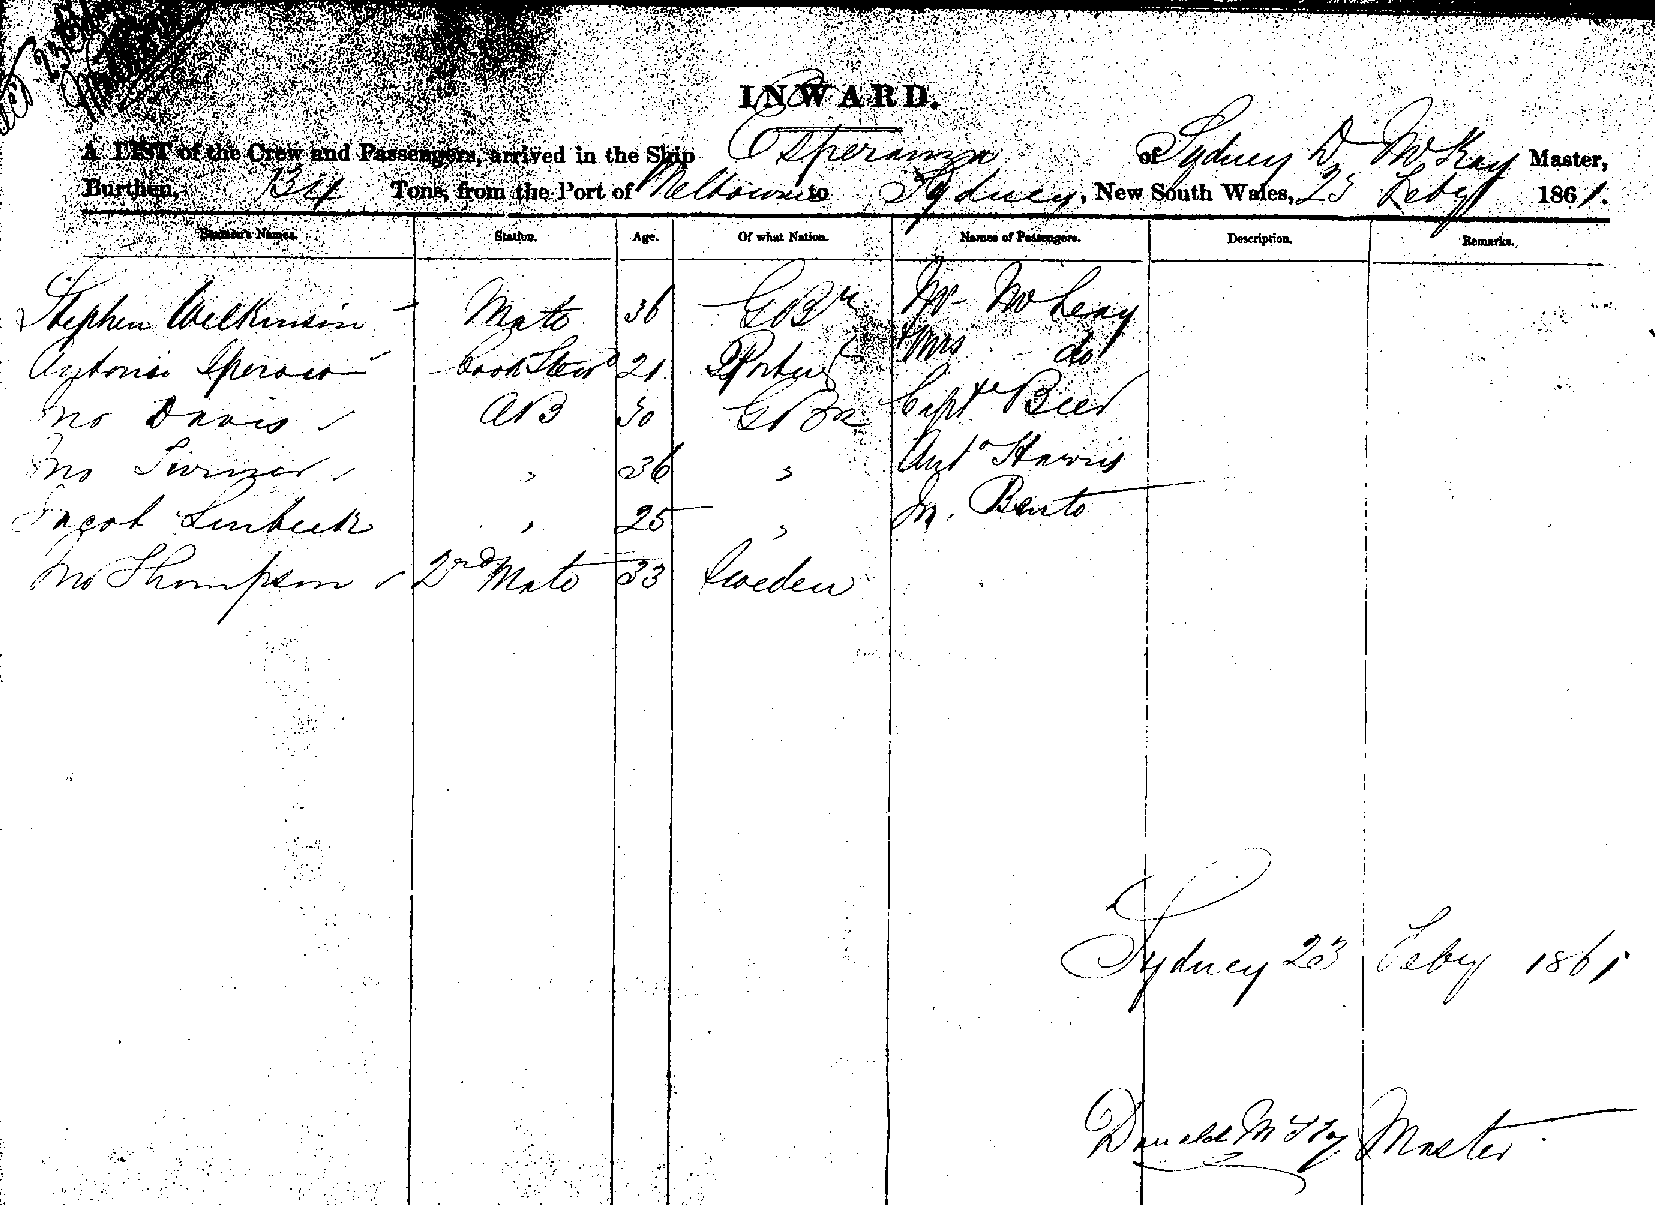 INWARD.
A LIST of the Crew and Passengers, arrived in the Ship Esperanza of Sydney D McKay Master,
Burthen, 134 Tons, from the Port of Melbourne to Sydney, New South Wales, 23 Feby 1861.
Seamen's Names. Station. Age. Of what Nation. Names of Passengers. Description. Remarks.
Stephen Wilkinson Mate 36 G Br Mr
Antonio Cook Stewd 21 Portu Mrs do
Jno Davis AB 30 G Br Capt
Jno 36 " Anto Harris
Jacob 25 "
Jno Thompson 2nd Mate 33 Sweden
Sydney 23 Feby 1861
Donald McKay Master